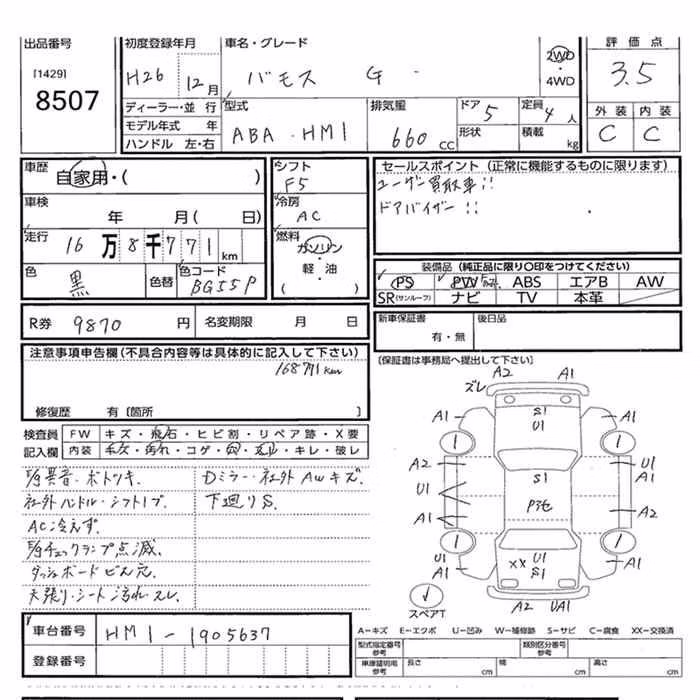 出品番号 初度登録年月 車名・グレード 評価点
[1429] 8507
H26 12月 バモス G 2WD・4WD 3.5
ディーラー・並行 型式 排気量 ドア 5 定員 4人 外装 内装
モデル年式 年 ABA-HM1 660CC 形状 積載 kg C C
ハンドル 左・右
車歴 自家用・( ) シフト F5 セールスポイント(正常に機能するものに限ります)
ユーザー買取車!!
車検 年 月( 日) 冷房 AC ドアバイザー!!
走行 16万8千771km 燃料 ガソリン・軽・油 ( )
色 黒 色替 色コード BG55P
装備品(純正品に限り○印をつけてください)
PS PW ABS エアB AW
SR(サンルーフ) ナビ TV 本革
R券 9870円 名変期限 月 日 新車保証書 有・無 後日品
注意事項申告欄(不具合内容等は具体的に記入して下さい)
168771km
修復歴 有〔箇所 〕
(保証書は事務局へ提出して下さい)
検査員 FW キズ・飛石・ヒビ割・リペア跡・X要
記入欄 内装 キズ・汚れ・コゲ・穴・スレ・キレ・破レ
E/g異音・ガトツキ. Dミラー・社外AWキズ.
社外ハンドル・シフトノブ. 下廻りS.
AC冷えず.
E/gチェックランプ点滅.
ダッシュボードビス穴.
天張り・シート汚れ・スレ.
車台番号 HM1-1905637
登録番号
A2 A1
ズレ
A1 S1 U1 A1
A2 U1 A1
U1 S1
Pヌセ
A1 A2
U1 A1 XX U1 S1 A1
A2 UA1
スペアT
A−キズ E−エクボ U−凹み W−補修跡 S−サビ C−腐食 XX−交換済
型式指定番号 参考 類別区分番号 参考
車庫証明用 参考 長さ cm 幅 cm 高さ cm